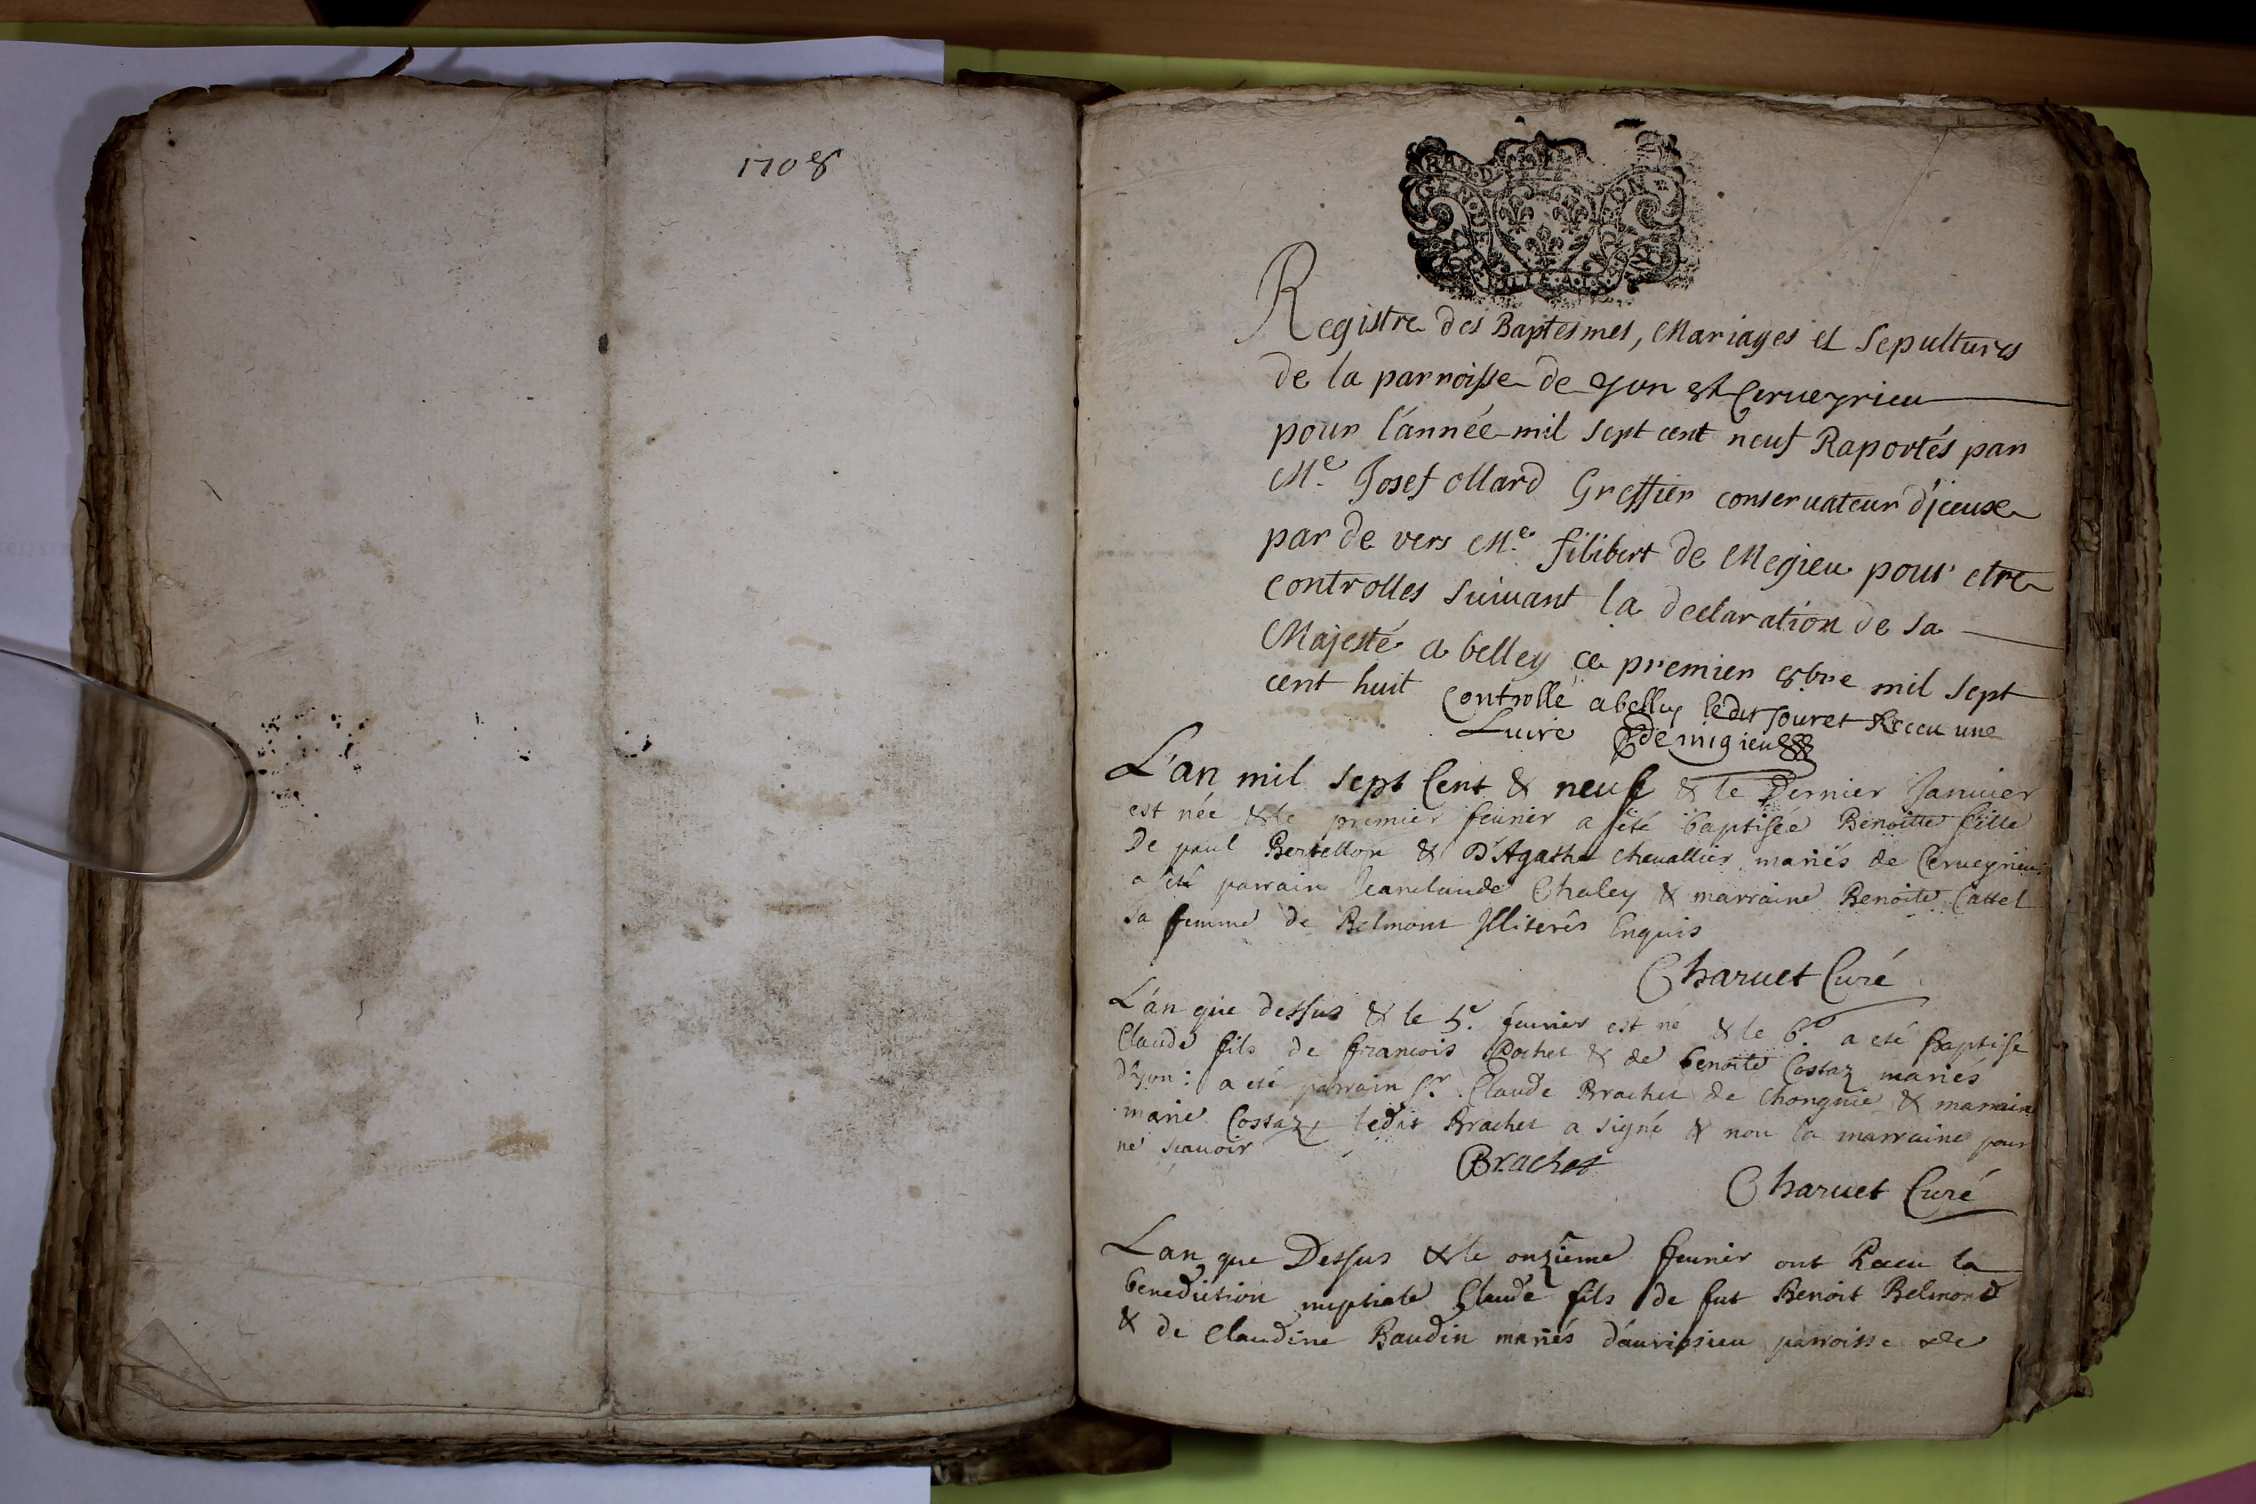 1708
Registre des Baptesmes, Mariages et Sepultures
de la parroisse de yon & Cerueyrieu
pour l'année mil sept cent neuf Raportés par
Me. Josef ollard Greffier conseruateur d'jceux
par de vers Me. filibert de Megieu pour etre
controlles suiuant la declaration de sa
Majesté a belley ce premier 8bre mil sept
cent huit Controllé a belley ledit jour et Receu une
Luire demigieu
L'an mil sept Cent & neuf & le Dernier Januier
est née & le premier feurier a été baptisée Benoitte fille
De paul Bertellon & D'Agathe cheuallier mariés de Cerueyrieu:
a été parrain Jeanclaude Chaley & marraine Benoite Cattel
sa femme de Belmont Illiterés Enquis
Charuet Curé
L'an que dessus & le 5e. feurier est né & le 6e. a eté baptisé
Claude fils de françois Pochet & de benoite Costaz mariés
d'yon: a eté parrain Sr. Claude Brachet de Chongnie & marrain
marie Costaz, ledit Brachet a signé & non la marraine pour
ne scauoir
Brachet
Charuet Curé
Lan que Dessus & le onzieme feurier ont Receu la
benediction nuptiale Claude fils de fut Benoit Belmond
& de Claudine Baudin mariés d'aurissieu parroisse de